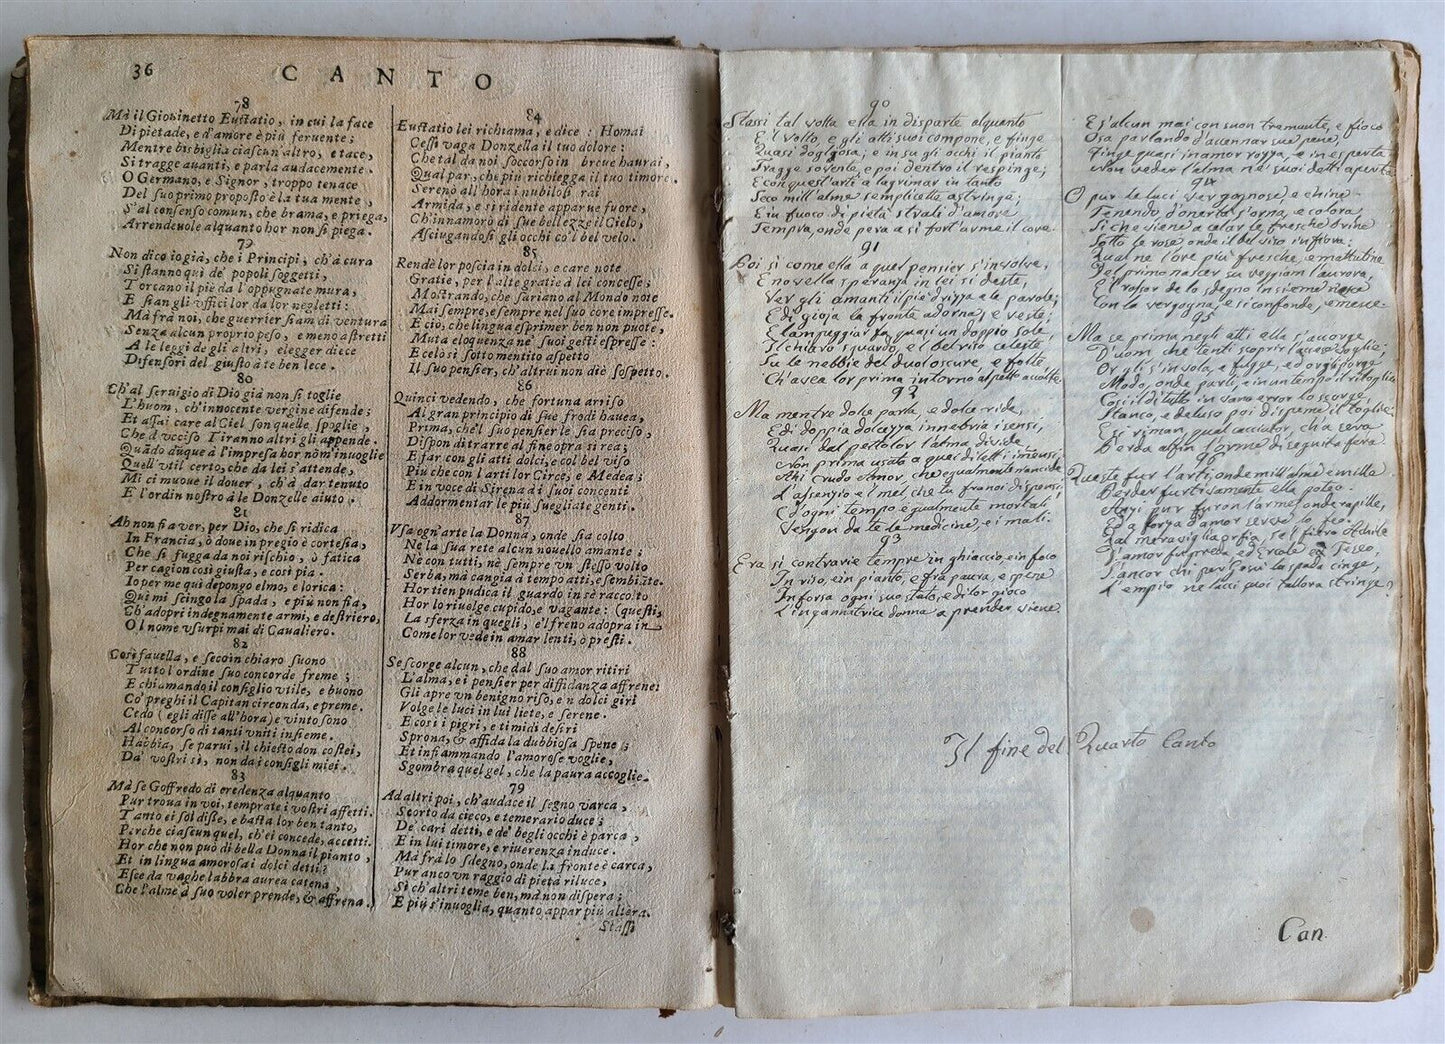 36
CANTO
78
Mà il Giovinetto Eustatio, in cui la face
Di pietade, e d'amore è più feruente;
Mentre bisbiglia ciascun'altro, e tace,
Si tragge auanti, e parla audacemente.
O Germano, e Signor, troppo tenace
Del suo primo proposto è la tua mente,
S'al consenso comun, che brama, e priega,
Arrendeuole alquanto hor non si piega.
79
Non dico io già, che i Principi, ch'à cura
Si stanno quì de' popoli soggetti,
Torcano il piè da l'oppugnate mura,
E sian gli vffici lor da lor negletti:
Mà frà noi, che guerrier siam di ventura
Senza alcun proprio peso, e meno astretti
A le leggi de gli altri, elegger diece
Difensori del giusto à te ben lece.
80
Ch'al seruigio di Dio già non si toglie
L'huom, ch'innocente vergine difende;
Et assai care al Ciel son quelle spoglie,
Che d'vcciso Tiranno altri gli appende.
Quãdo dũque à l'impresa hor nõ m'inuoglie
Quell'vtil certo, che da lei s'attende,
Mi ci muoue il douer, ch'à dar tenuto
E l'ordin nostro à le Donzelle aiuto.
81
Ah non sia ver, per Dio, che si ridica
In Francia, ò doue in pregio è cortesia,
Che si fugga da noi rischio, ò fatica
Per cagion così giusta, e così pia.
Io per me quì depongo elmo, e lorica:
Quì mi scingo la spada, e più non fia,
Ch'adopri indegnamente armi, e destriero,
O'l nome vsurpi mai di Caualiero.
82
Così fauella, e seco in chiaro suono
Tutto l'ordine suo concorde freme;
E chiamando il consiglio vtile, e buono
Co' preghi il Capitan circonda, e preme.
Cedo (egli disse all'hora) e vinto sono
Al concorso di tanti vniti insieme.
Habbia, se parui, il chiesto don costei,
Da' vostri sì, non da i consigli miei.
83
Mà se Goffredo di credenza alquanto
Pur troua in voi, temprate i vostri affetti.
Tanto ei sol disse, e basta lor ben tanto,
Perche ciascun quel, ch'ei concede, accetti.
Hor che non può di bella Donna il pianto,
Et in lingua amorosa i dolci detti?
Esce da vaghe labbra aurea catena,
Che l'alme à suo voler prende, & affrena.
84
Eustatio lei richiama, e dice: Homai
Cessi vaga Donzella il tuo dolore:
Che tal da noi soccorso in breue haurai,
Qual par, che più richiegga il tuo timore.
Serenò all'hora i nubilosi rai
Armida, e sì ridente apparue fuore,
Ch'innamorò di sue bellezze il Cielo,
Asciugandosi gli occhi co'l bel velo.
85
Rendè lor poscia in dolci, e care note
Gratie, per l'alte gratie à lei concesse;
Mostrando, che sariano al Mondo note
Mai sempre, e sempre nel suo core impresse.
E ciò, che lingua esprimer ben non puote,
Muta eloquenza ne' suoi gesti espresse:
E celò sì sotto mentito aspetto
Il suo pensier, ch'altrui non diè sospetto.
86
Quinci vedendo, che fortuna arriso
Al gran principio di sue frodi hauea,
Prima, che'l suo pensier le sia preciso,
Dispon di trarre al fine opra sì rea;
E far con gli atti dolci, e col bel viso
Più che con l'arti lor Circe, e Medea;
E in voce di Sirena à i suoi concenti
Addormentar le più suegliate genti.
87
Vsa ogn'arte la Donna, onde sia colto
Ne la sua rete alcun nouello amante;
Nè con tutti, nè sempre vn stesso volto
Serba, mà cangia à tempo atti, e sembiãte.
Hor tien pudica il guardo in sè raccolto
Hor lo riuolge cupido, e vagante: (questi,
La sferza in quegli, e'l freno adopra in
Come lor vede in amar lenti, ò presti.
88
Se scorge alcun, che dal suo amor ritiri
L'alma, e i pensier per diffidanza affrene:
Gli apre vn benigno riso, e'n dolci giri
Volge le luci in lui liete, e serene.
E così i pigri, e timidi desiri
Sprona, & affida la dubbiosa spene;
Et infiammando l'amorose voglie,
Sgombra quel gel, che la paura accoglie.
79
Ad altri poi, ch'audace il segno varca,
Scorto da cieco, e temerario duce;
De' cari detti, e de' begli occhi è parca,
E in lui timore, e riuerenza induce.
Mà frà lo sdegno, onde la fronte è carca,
Pur anco vn raggio di pietà riluce,
Sì ch'altri teme ben, mà non dispera;
E più s'inuoglia, quanto appar più altera.
Stassi
90
Stassi tal volta ella in disparte alquanto
E'l volto, e gli atti suoi compone, e finge
Quasi dogliosa; e in su gli occhi il pianto
Tragge sovente, e poi dentro il respinge;
E con quest'arti a lagrimar in tanto
Seco mill'alme semplicette astringe;
E in fuoco di pietà strali d'amore
Tempra, onde pera a sì fort'arme il core.
91
Poi sì come ella a quel pensier s'involve,
E novella speranza in lei si deste,
Ver gli amanti il piè drizza e le parole;
E di gioja la fronte adorna, e veste;
E lampeggiar fa, quasi un doppio sole,
Il chiaro sguardo, e'l bel viso celeste
Su le nebbie del duol oscure, e folte,
Ch'avea lor prima intorno al petto accolte.
92
Ma mentre dolce parla, e dolce ride,
E di doppia dolcezza innebria i sensi,
Quasi dal petto lor l'alma divide,
Non prima usata a quei diletti immensi,
Ahi crudo Amor, che egualmente n'ancide
L'assenzio e'l mel, che tu fra noi dispensi,
E d'ogni tempo egualmente mortali
Vengon da te le medicine, e i mali.
93
Era sì contrarie tempre in ghiaccio, e in foco
In riso, e in pianto, e frà paura, e spene
Inforsa ogni suo stato, e di lor gioco
L'ingannatrice donna a prender viene.
E s'alcun mai con suon tremante, e fioco
Osa parlando d'accennar sue pene,
Finge quasi in amor rozza, e in esperta
Non veder l'alma ne' suoi detti aperta
94
O pur le luci vergognose, e chine
Tenendo, d'onestà s'orna, e colora,
Sì che viene a celar le fresche brine
Sotto le rose onde il bel viso infiora:
Qual ne l'ore più fresche, e mattutine
Del primo nascer suo veggiam l'aurora,
E'l rossor de lo sdegno insieme n'esce
Con la vergogna, e si confonde, e mesce.
95
Ma se prima negli atti ella s'accorge
D'uom che tenti scoprir l'accese voglie;
Or gli s'invola, e fugge, ed or gli porge
Modo, onde parli, e in un tempo il ritoglie
Così il dì tutto in vano error lo scorge
Stanco, e deluso poi di speme il toglie
E si riman, qual cacciator, ch'a sera
Perda alfin l'orme di seguita fera.
96
Queste fur l'arti, onde mill'alme e mille
Prender furtivamente ella poteo.
Anzi pur furon l'arme, onde rapille,
Ed a forza d'amor serve le feo.
Qual meraviglia or fia, se'l fiero Achille
D'amor fu preda, ed Ercole ed Teseo,
S'ancor chi per Gesù la spada cinge,
L'empio ne' lacci suoi tallora stringe?
Il fine del Quarto Canto
Can.